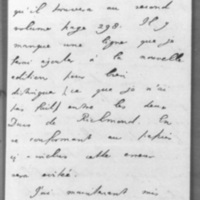 qu'il trouvera au second
volume page 298. Il y
manque une ligne que je
ferai ajouter à la nouvelle
édition pour bien
distinguer (ce que je n'ai
pas fait) entre les deux
Ducs de Richmond. En
se conformant au papier
ci-inclus cette erreur
sera évitée.
Qui maintenant mis